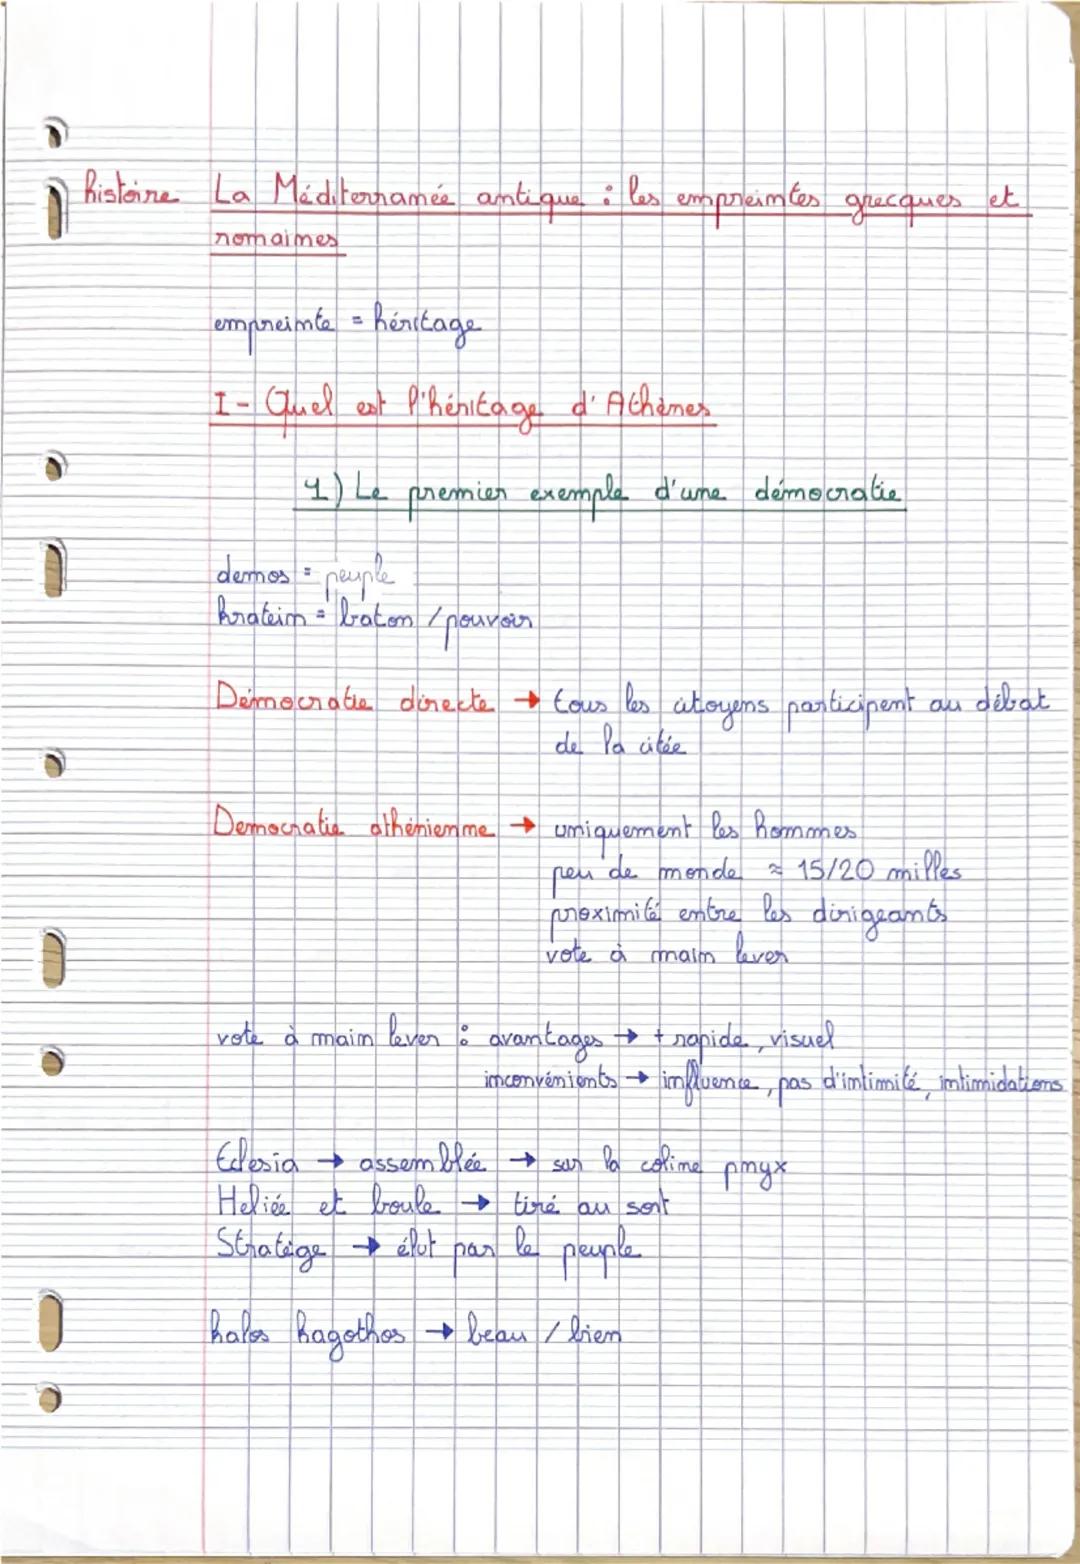 histoire La Méditerranée antique : les empreintes grecques et
romaines
empreinte = héritage
I - Quel est l'héritage d'Athènes
1) Le premier exemple d'une démocratie
demos = peuple
kratein = baton / pouvoir
Démocratie directe → tous les citoyens participent au débat
de la citée
Democratie athénienne → uniquement les hommes
peu de monde ≈ 15/20 milles
proximité entre les dirigeants
vote à main lever
vote à main lever : avantages → + rapide, visuel
inconvénients → influence, pas d'intimité, intimidations
Eclesia → assemblée → sur la coline pnyx
Heliée et boule → tiré au sort
Stratège → élut par le peuple
kalos kagothos → beau / bien